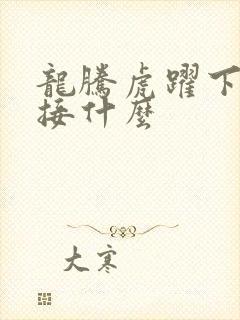 龍騰虎躍下
接什麼
大寒